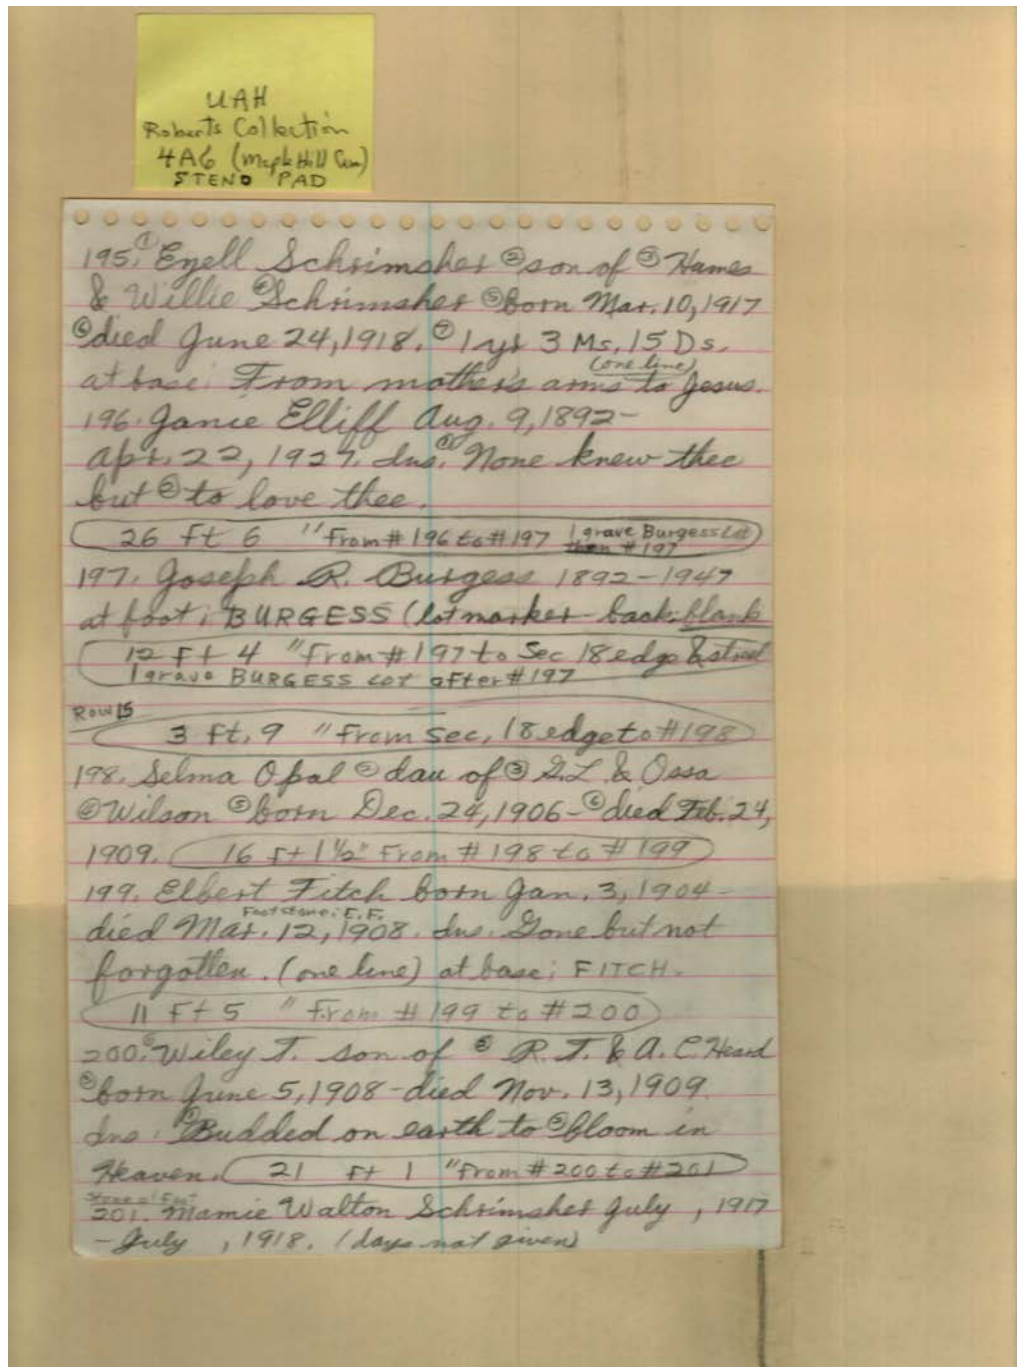 UAH
Roberts Collection
4A6 (Maple Hill Cem)
STENO PAD
195. ① Ezell Schrimsher ② son of ③ Hames
& Willie ④ Schrimsher ⑤ born Mar. 10, 1917
⑥ died June 24, 1918. ⑦ 1 yr 3 Ms. 15 Ds.
(one line)
at base: From mother's arms to Jesus.
196. Janie Elliff Aug. 9, 1892-
Apr. 22, 1927. dns. ① None knew thee
but ② to love thee.
26 ft 6 " From #196 to #197 1 grave Burgess Lot
then #197
197. Joseph R. Burgess 1892-1947
at foot: BURGESS (lot marker - back: blank
12 Ft 4 " From #197 to Sec 18 edge & street
1 grave BURGESS LOT after #197
Row 15
3 ft. 9 " from Sec. 18 edge to #198
198. Selma Opal ② dau of ③ G.L. & Ossa
④ Wilson ⑤ born Dec. 24, 1906- ⑥ died Feb. 24,
1909. 16 ft 1½" From #198 to #199
199. Elbert Fitch born Jan. 3, 1904-
Footstone: E.F.
died Mar. 12, 1908. dns. Gone but not
forgotten. (one line) at base: FITCH.
11 Ft 5 " From #199 to #200
200. Wiley T. son of ② R.T. & A.C. Heard
③ born June 5, 1908-died Nov. 13, 1909.
dns: ① Budded on earth to ② bloom in
Heaven. 21 ft 1 "From #200 to #201
Stone at Foot
201. Mamie Walton Schrimsher July , 1917
- July , 1918. (days not given)